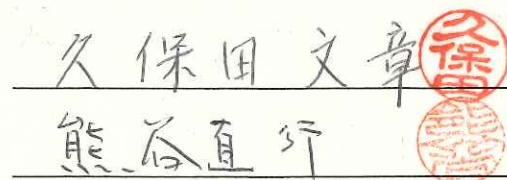 久保田文章 久保田
熊谷直行 熊谷